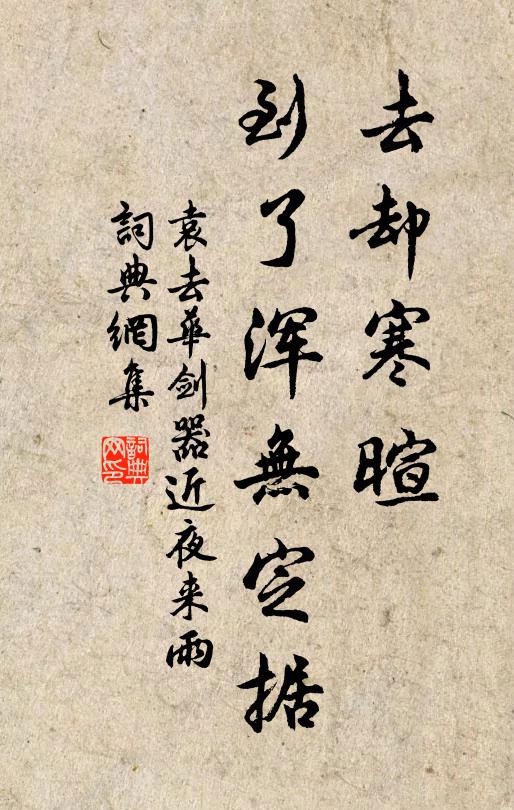 去却寒暄
到了浑無定据
袁去華剑器近夜来雨
詞典網集
詞典
网印